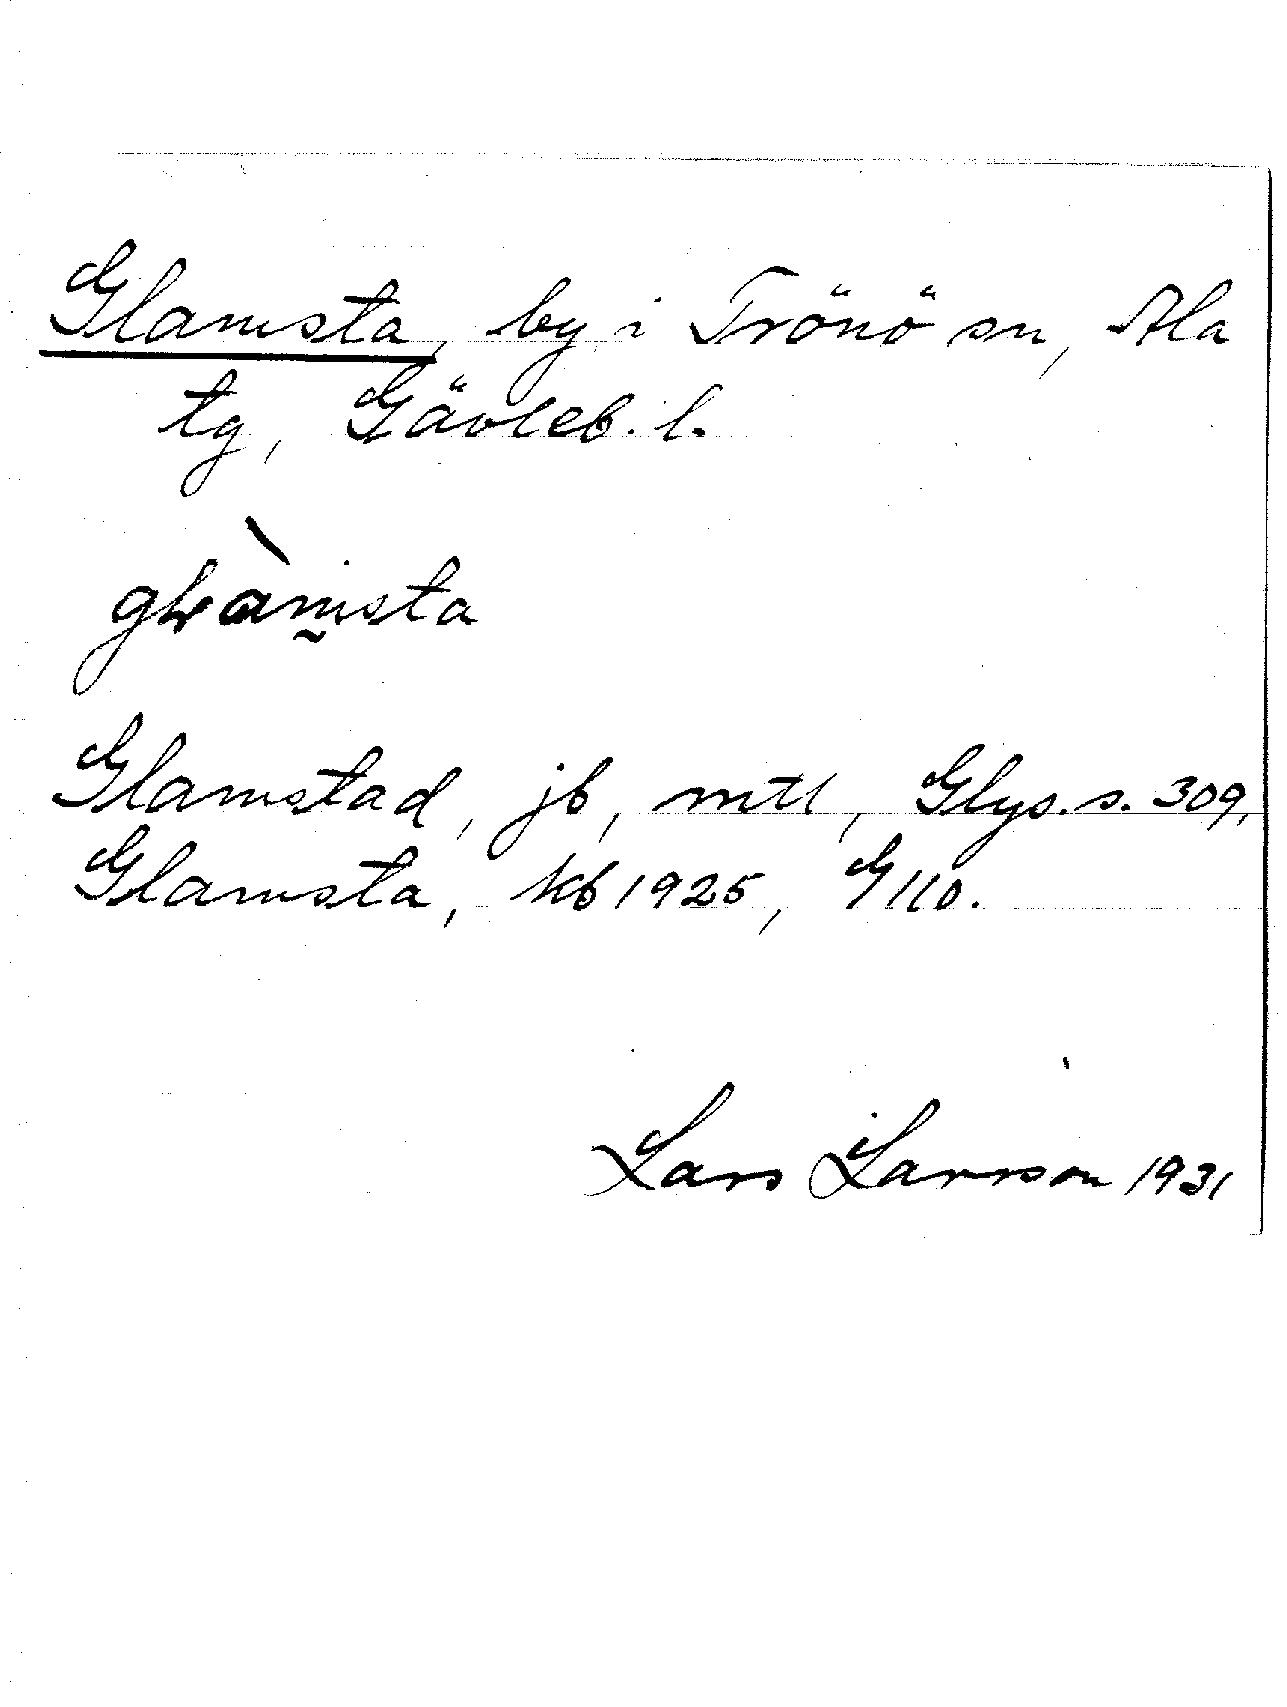 Glamsta, by i Trönö sn, Ala
tg, Gävleb. l.
gɫàm̰sta
Glamstad, jb, mtl, Glys. s. 309,
Glamsta, kb 1925, G 110.
Lars Larsson 1931